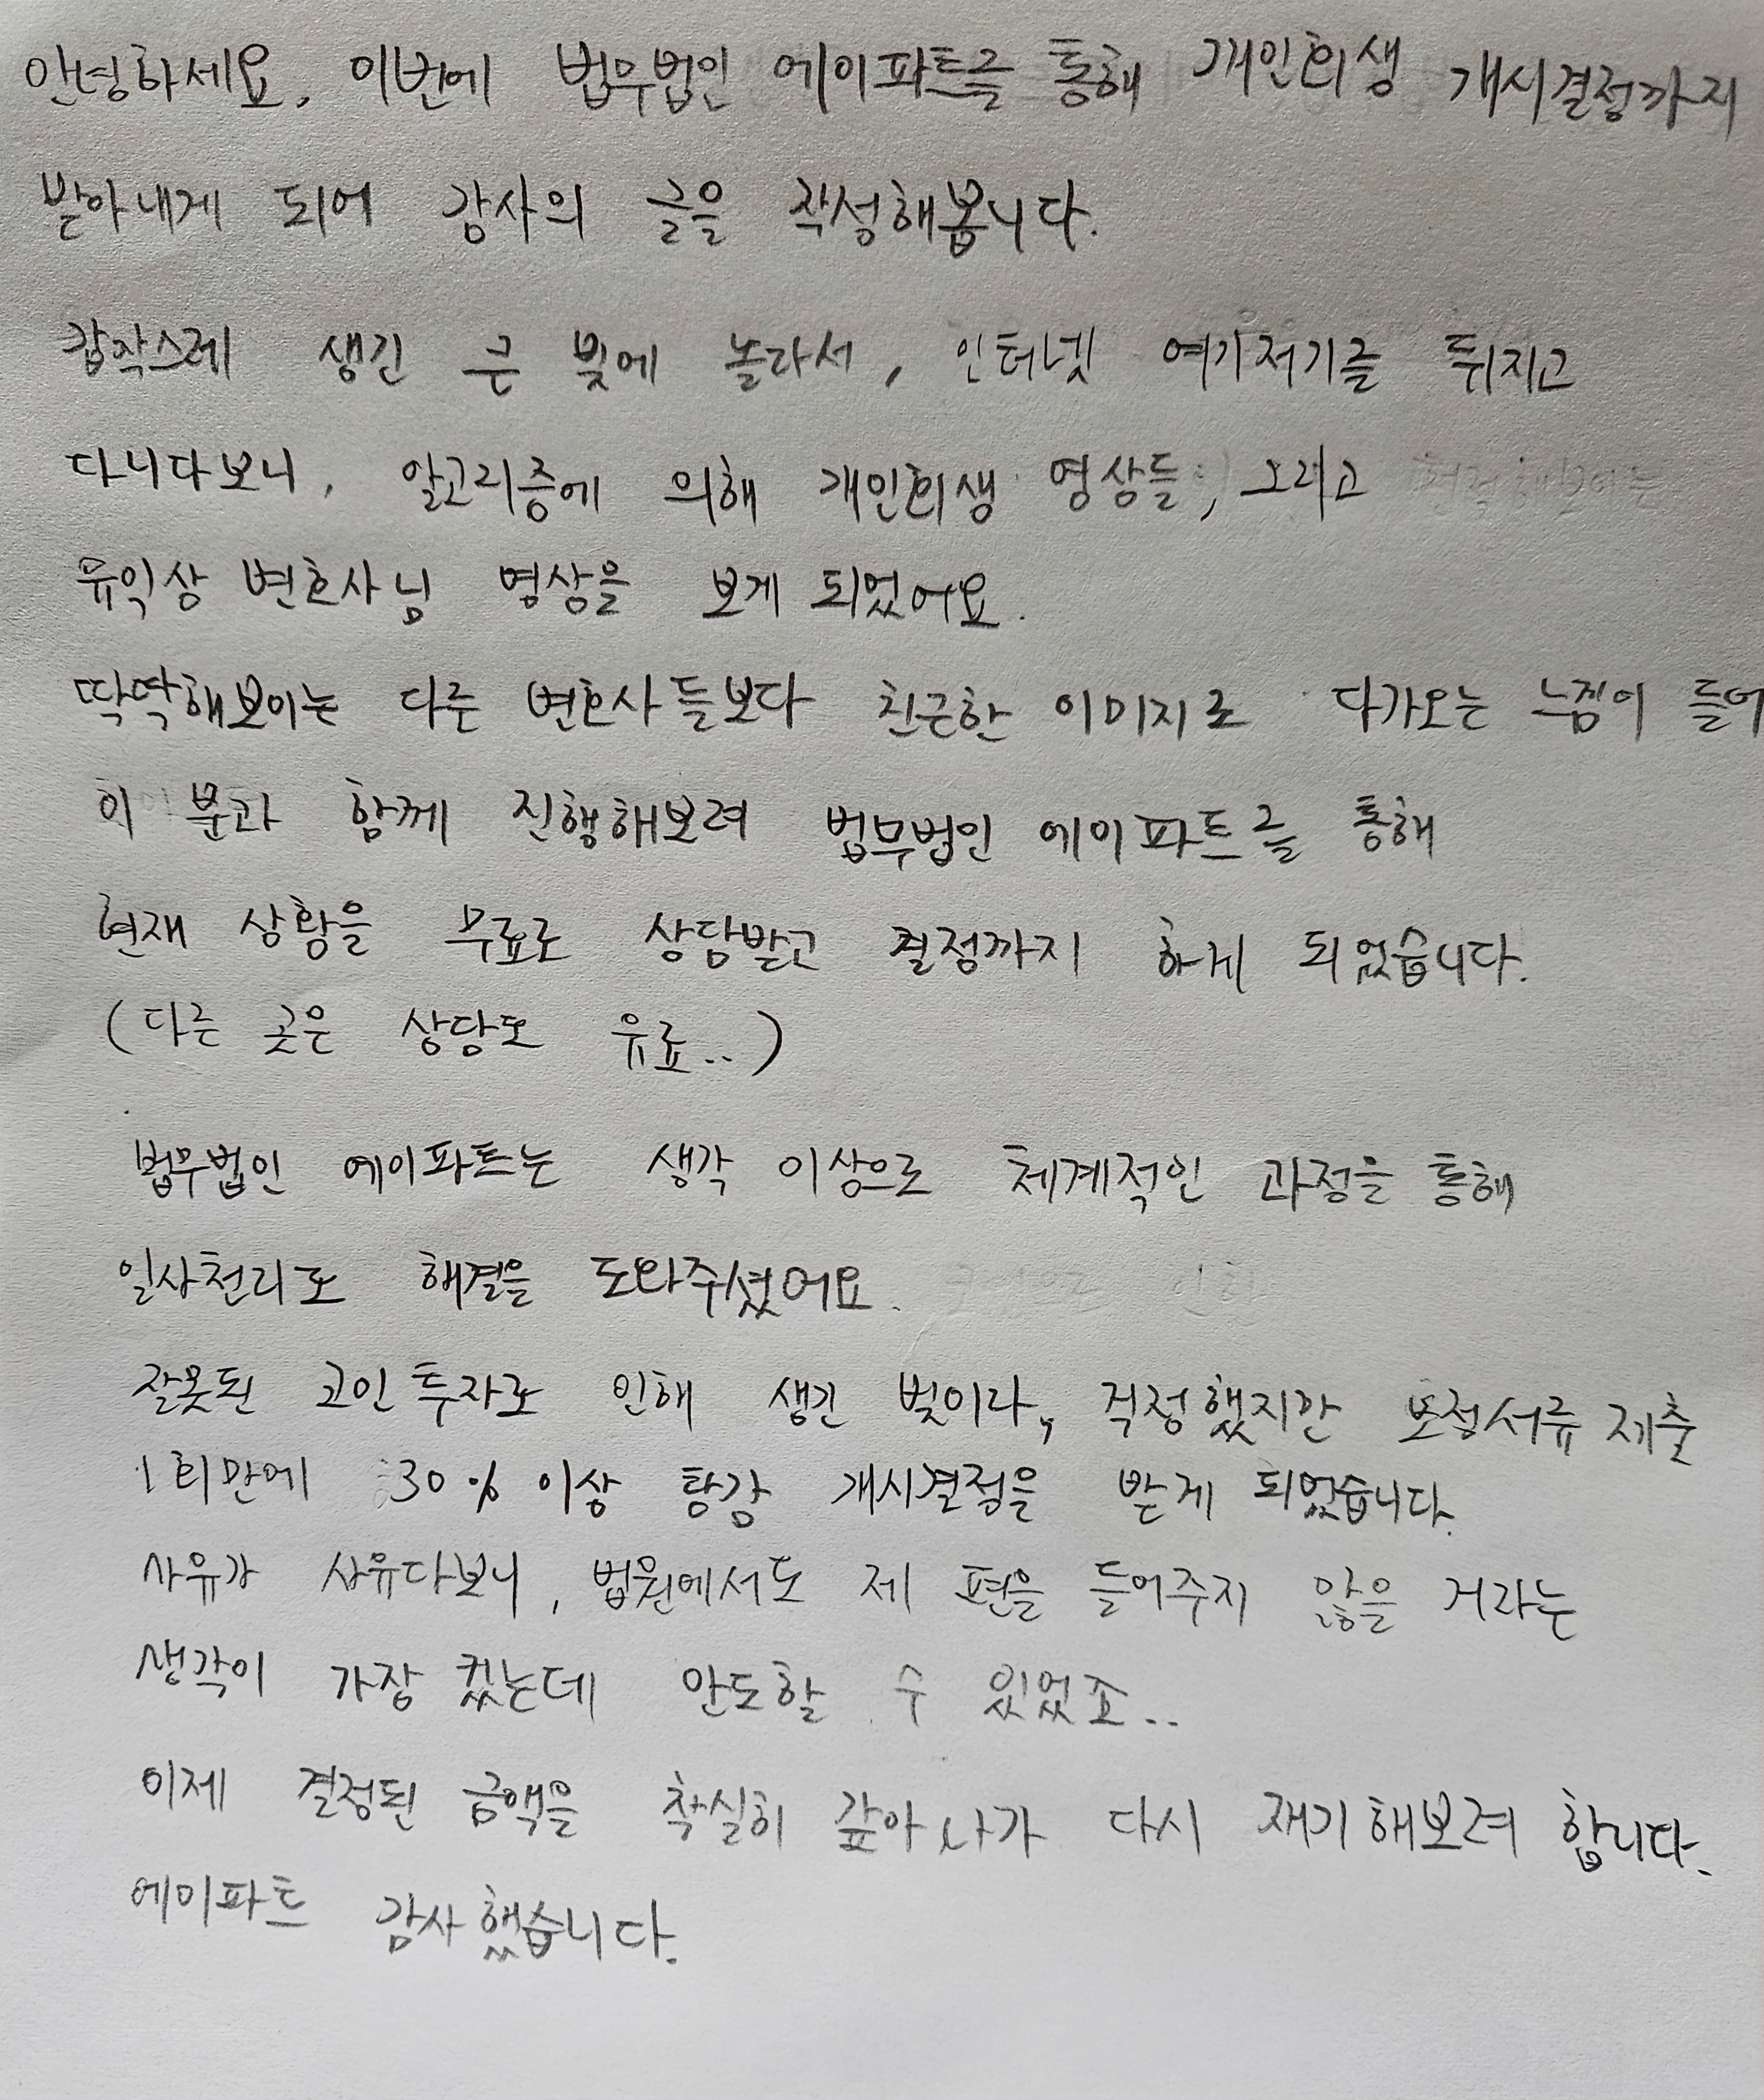 안녕하세요, 이번에 법무법인 에이파트를 통해 개인회생 개시결정까지
받아내게 되어 감사의 글을 작성해봅니다.
갑작스레 생긴 큰 빚에 놀라서, 인터넷 여기저기를 뒤지고
다니다보니, 알고리즘에 의해 개인회생 영상들, 그리고
유익상 변호사님 영상을 보게 되었어요.
딱딱해보이는 다른 변호사들보다 친근한 이미지로 다가오는 느낌이 들어
이 분과 함께 진행해보려 법무법인 에이파트를 통해
현재 상황을 무료로 상담받고 결정까지 하게 되었습니다.
(다른 곳은 상담도 유료..)
법무법인 에이파트는 생각 이상으로 체계적인 과정을 통해
일사천리로 해결을 도와주셨어요.
잘못된 코인투자로 인해 생긴 빚이라, 걱정했지만 보정서류 제출
1회만에 30% 이상 탕감 개시결정을 받게 되었습니다.
사유가 사유다보니, 법원에서도 제 편을 들어주지 않을 거라는
생각이 가장 컸는데 안도할 수 있었죠..
이제 결정된 금액을 착실히 갚아나가 다시 재기해보려 합니다.
에이파트 감사했습니다.